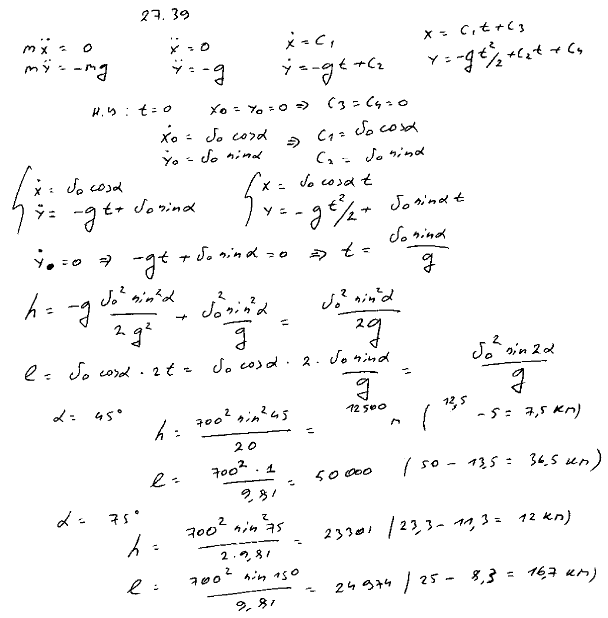 27.39
mẍ = 0 ẍ = 0 ẋ = C₁ x = C₁t + C₃
mÿ = -mg ÿ = -g ẏ = -gt + C₂ y = -gt²/2 + C₂t + C₄
н.у : t=0 x₀ = y₀ = 0 ⇒ C₃ = C₄ = 0
ẋ₀ = v₀ cosα ⇒ C₁ = v₀ cosα
ẏ₀ = v₀ sinα C₂ = v₀ sinα
{ ẋ = v₀ cosα { x = v₀ cosα t
ẏ = -gt + v₀ sinα y = -gt²/2 + v₀ sinα t
ẏ₀ = 0 ⇒ -gt + v₀ sinα = 0 ⇒ t = v₀ sinα / g
h = -g v₀² sin²α / 2g² + v₀² sin²α / g = v₀² sin²α / 2g
l = v₀ cosα · 2t = v₀ cosα · 2 · v₀ sinα / g = v₀² sin 2α / g
α = 45° h = 700² sin² 45 / 20 = 12500 м ( 12,5 - 5 = 7,5 км)
l = 700² · 1 / 9,81 = 50000 / 50 - 13,5 = 36,5 км)
α = 75° h = 700² sin² 75 / 2 · 9,81 = 23301 / 23,3 - 11,3 = 12 км)
l = 700² sin 150 / 9,81 = 24974 / 25 - 8,3 = 16,7 км)